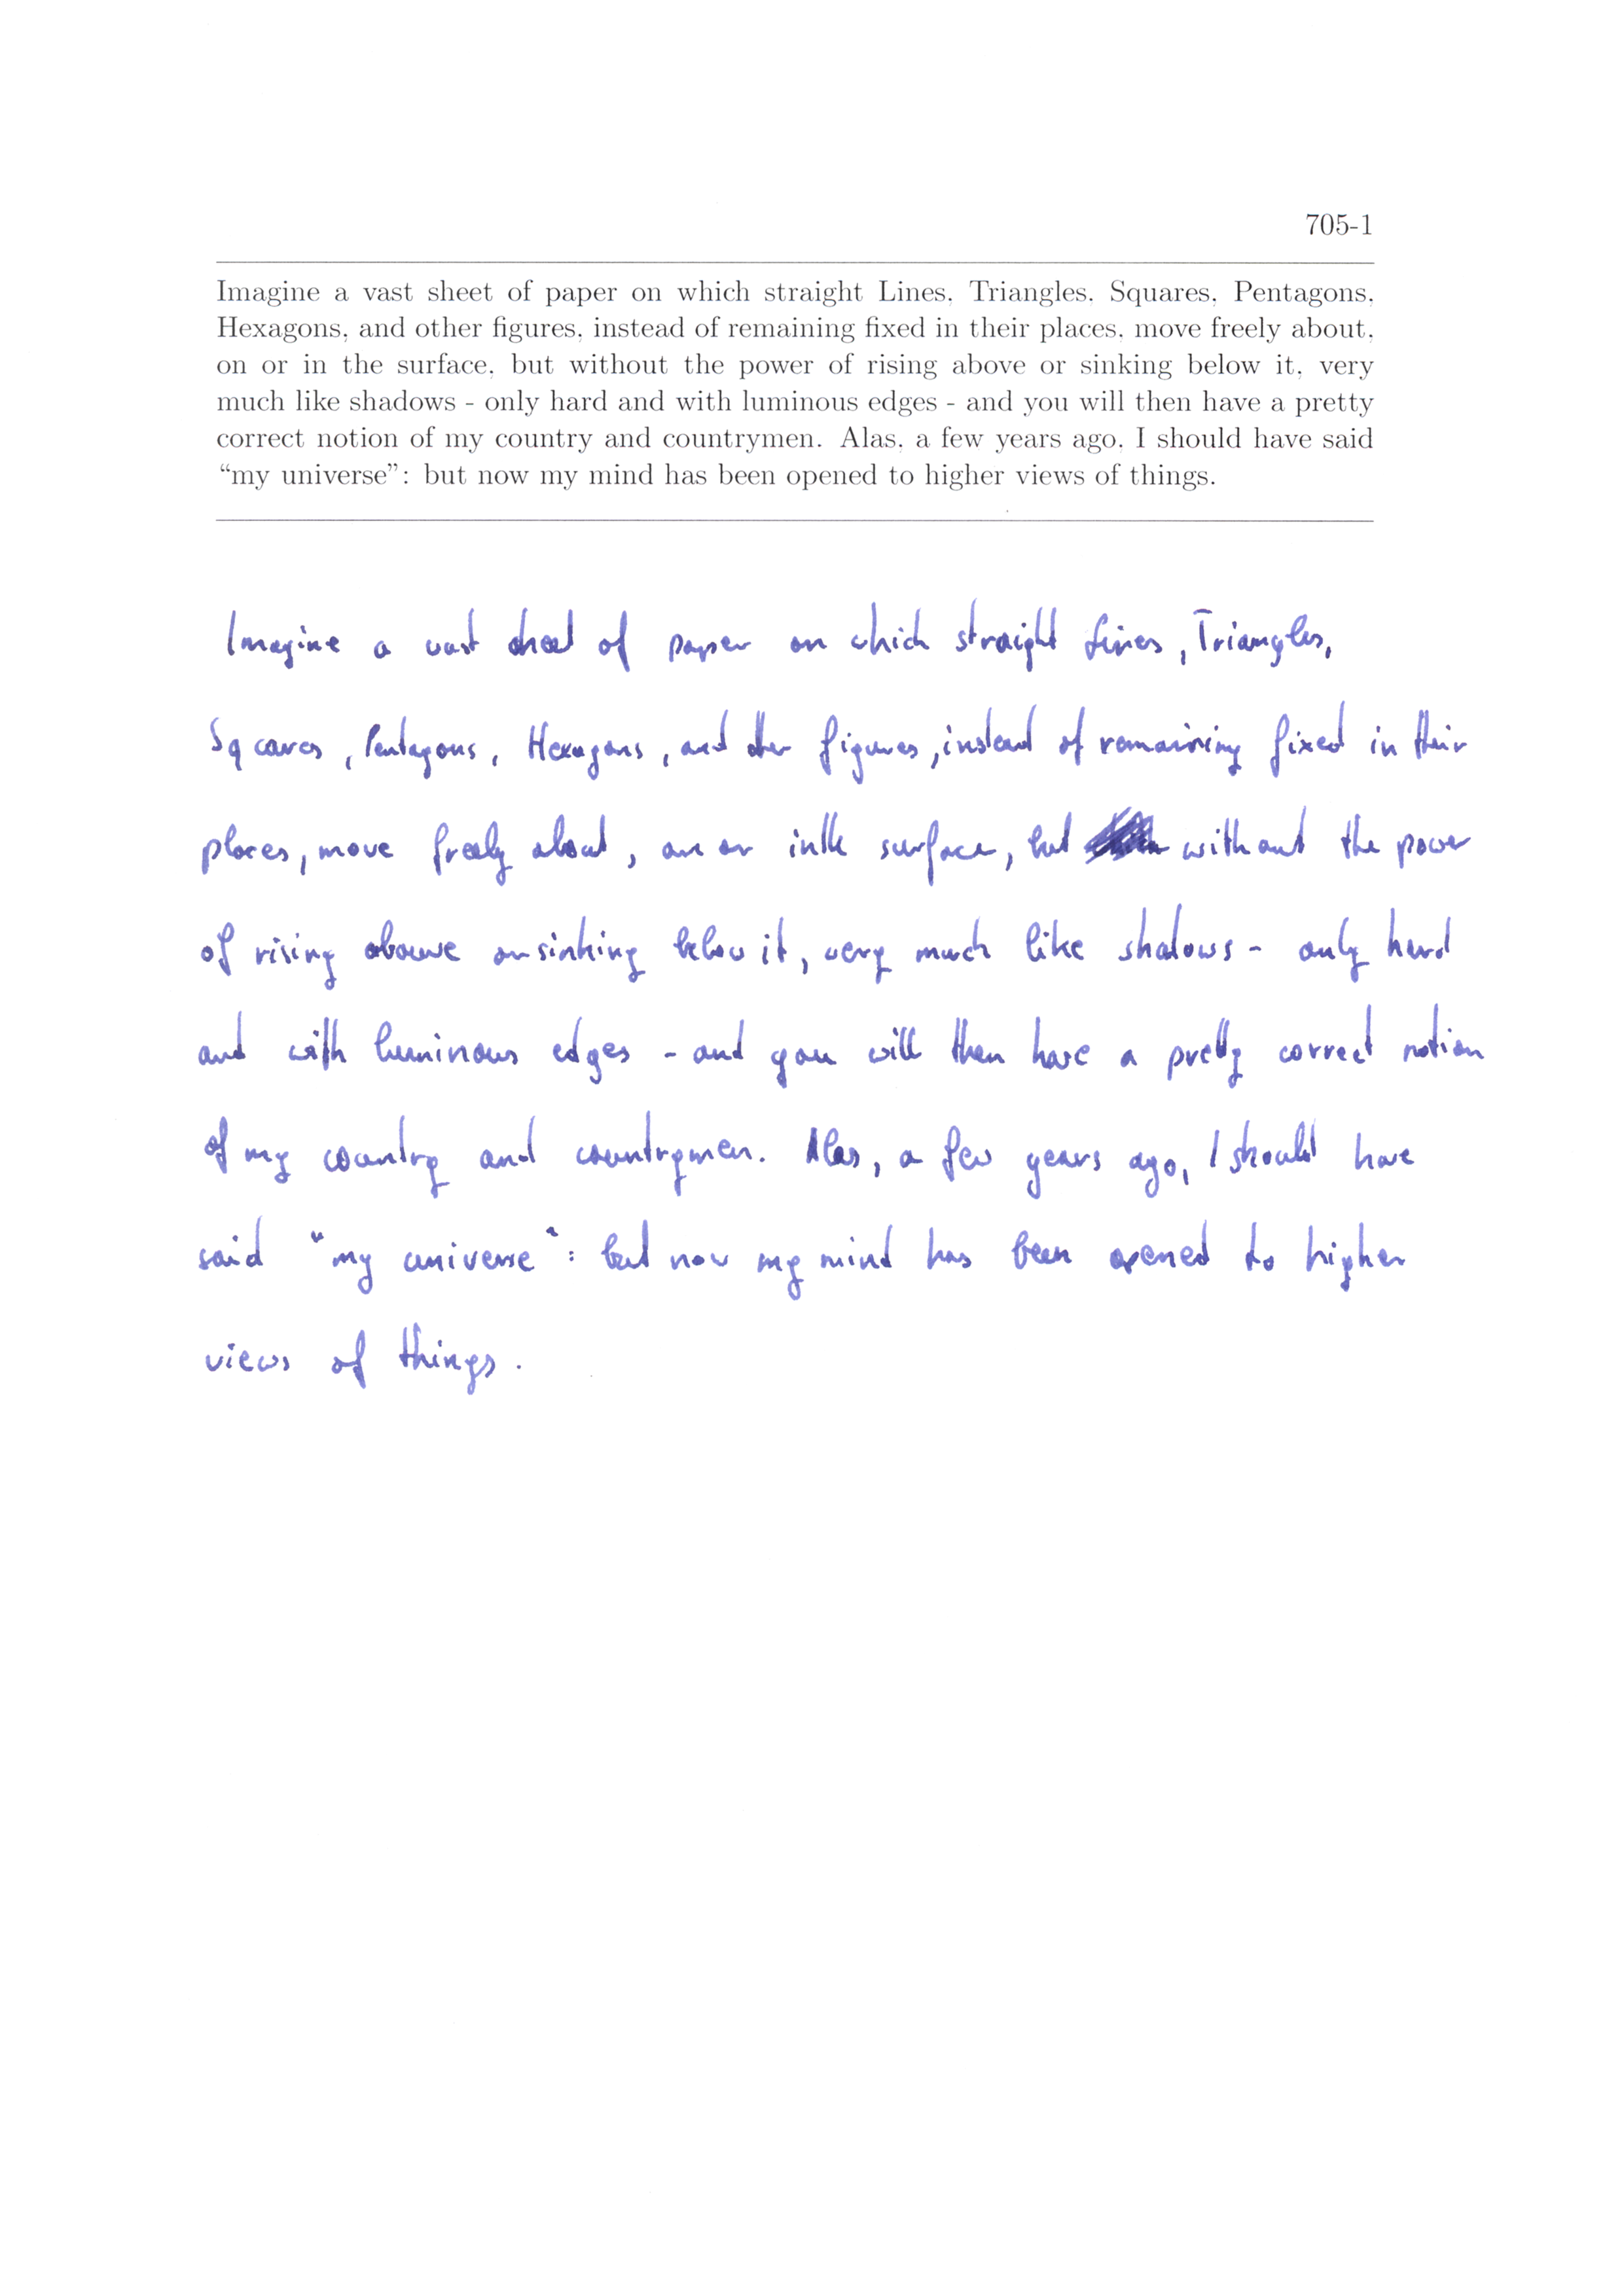 705-1
Imagine a vast sheet of paper on which straight Lines, Triangles, Squares, Pentagons,
Hexagons, and other figures, instead of remaining fixed in their places, move freely about,
on or in the surface, but without the power of rising above or sinking below it, very
much like shadows - only hard and with luminous edges - and you will then have a pretty
correct notion of my country and countrymen. Alas, a few years ago, I should have said
“my universe”: but now my mind has been opened to higher views of things.
Imagine a vast sheet of paper on which straight Lines, Triangles,
Sqcares, Pentagons, Hexagons, and other figures, instead of remaining fixed in their
places, move freely about, on or in the surface, but without the power
of rising abouve or sinking below it, very much like shadows - only hard
and with luminous edges - and you will then have a pretty correct notion
of my country and countrymen. Alas, a few years ago, I should have
said "my universe": but now my mind has been opened to higher
views of things.